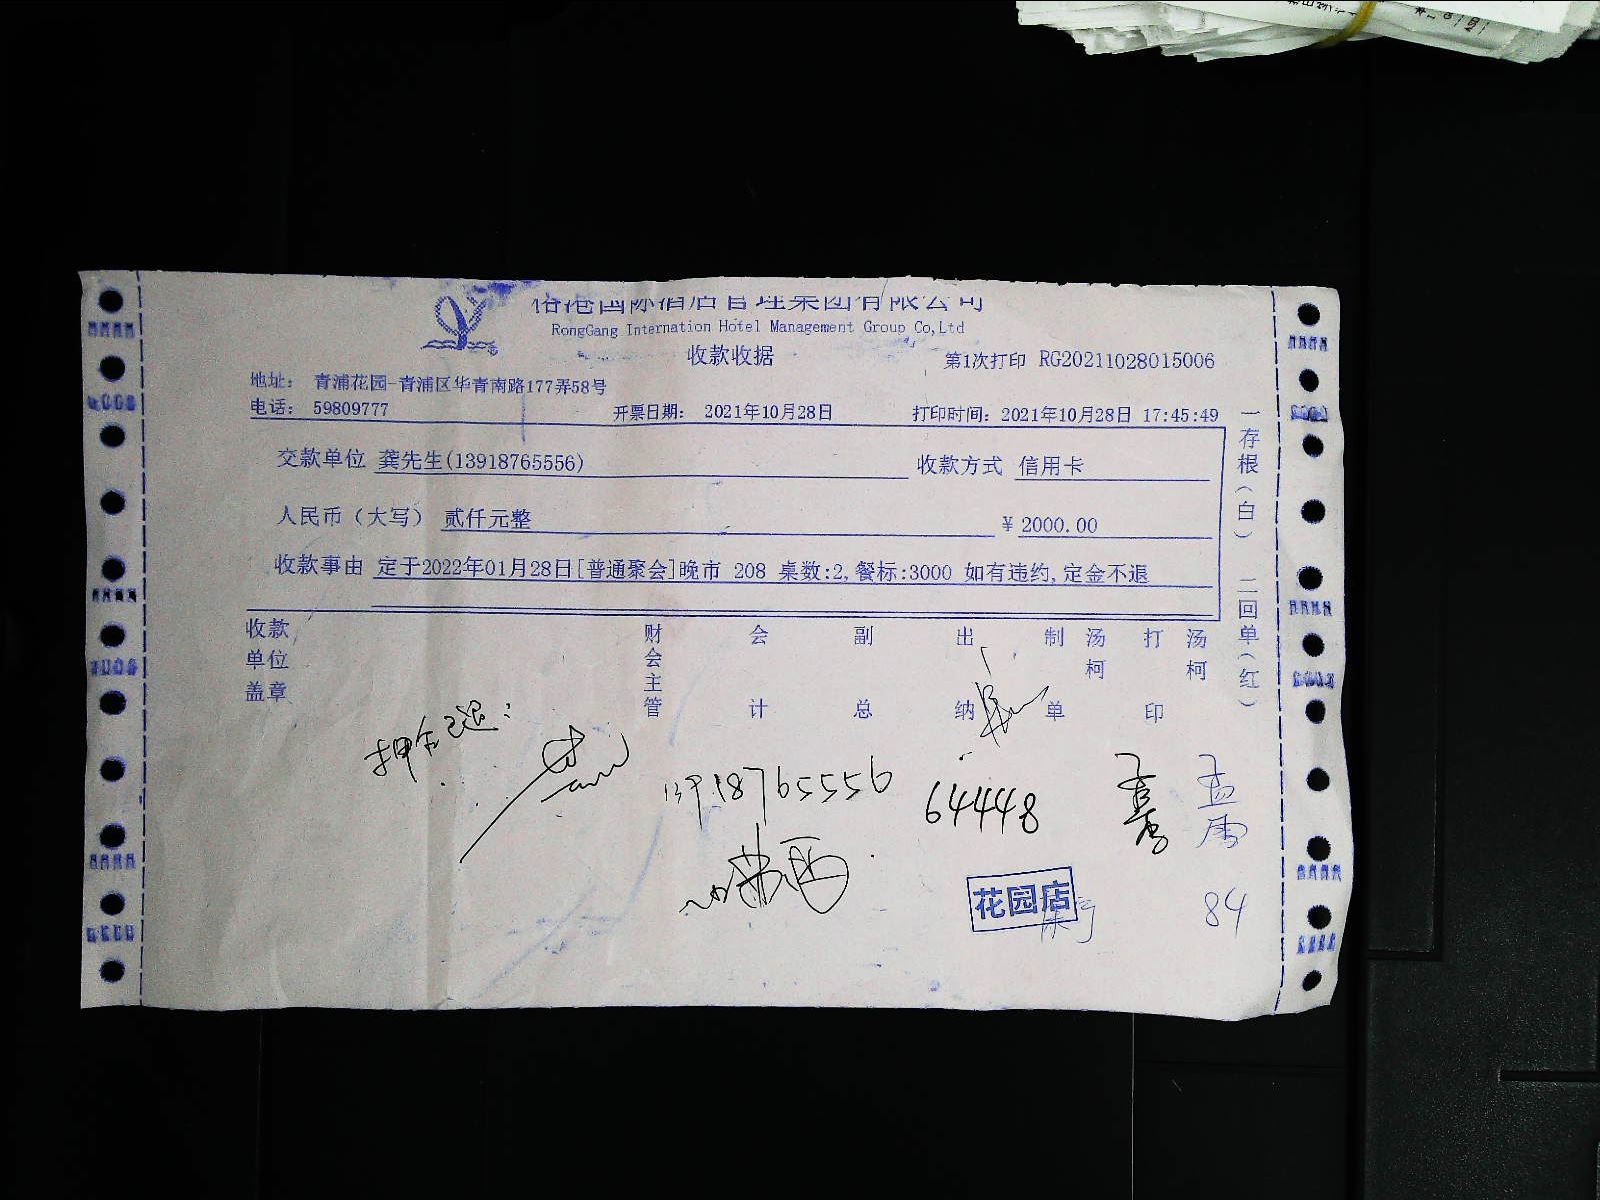 港国际酒店管理集团有限公司
RongGang Internation Hotel Management Group Co,Ltd
收款收据
第1次打印 RG20211028015006
地址： 青浦花园-青浦区华青南路177弄58号
电话： 59809777
开票日期： 2021年10月28日
打印时间: 2021年10月28日 17:45:49
交款单位 龚先生(13918765556)
收款方式 信用卡
人民币（大写） 贰仟元整
￥2000.00
收款事由 定于2022年01月28日[普通聚会]晚市 208 桌数:2,餐标:3000 如有违约,定金不退
一存根（白） 二回单（红）
收款单位盖章
财会主管
会计
副总
出纳
制单
汤柯
打印
汤柯
押金已退：
13918765556
64448
孟雪
花园店
84